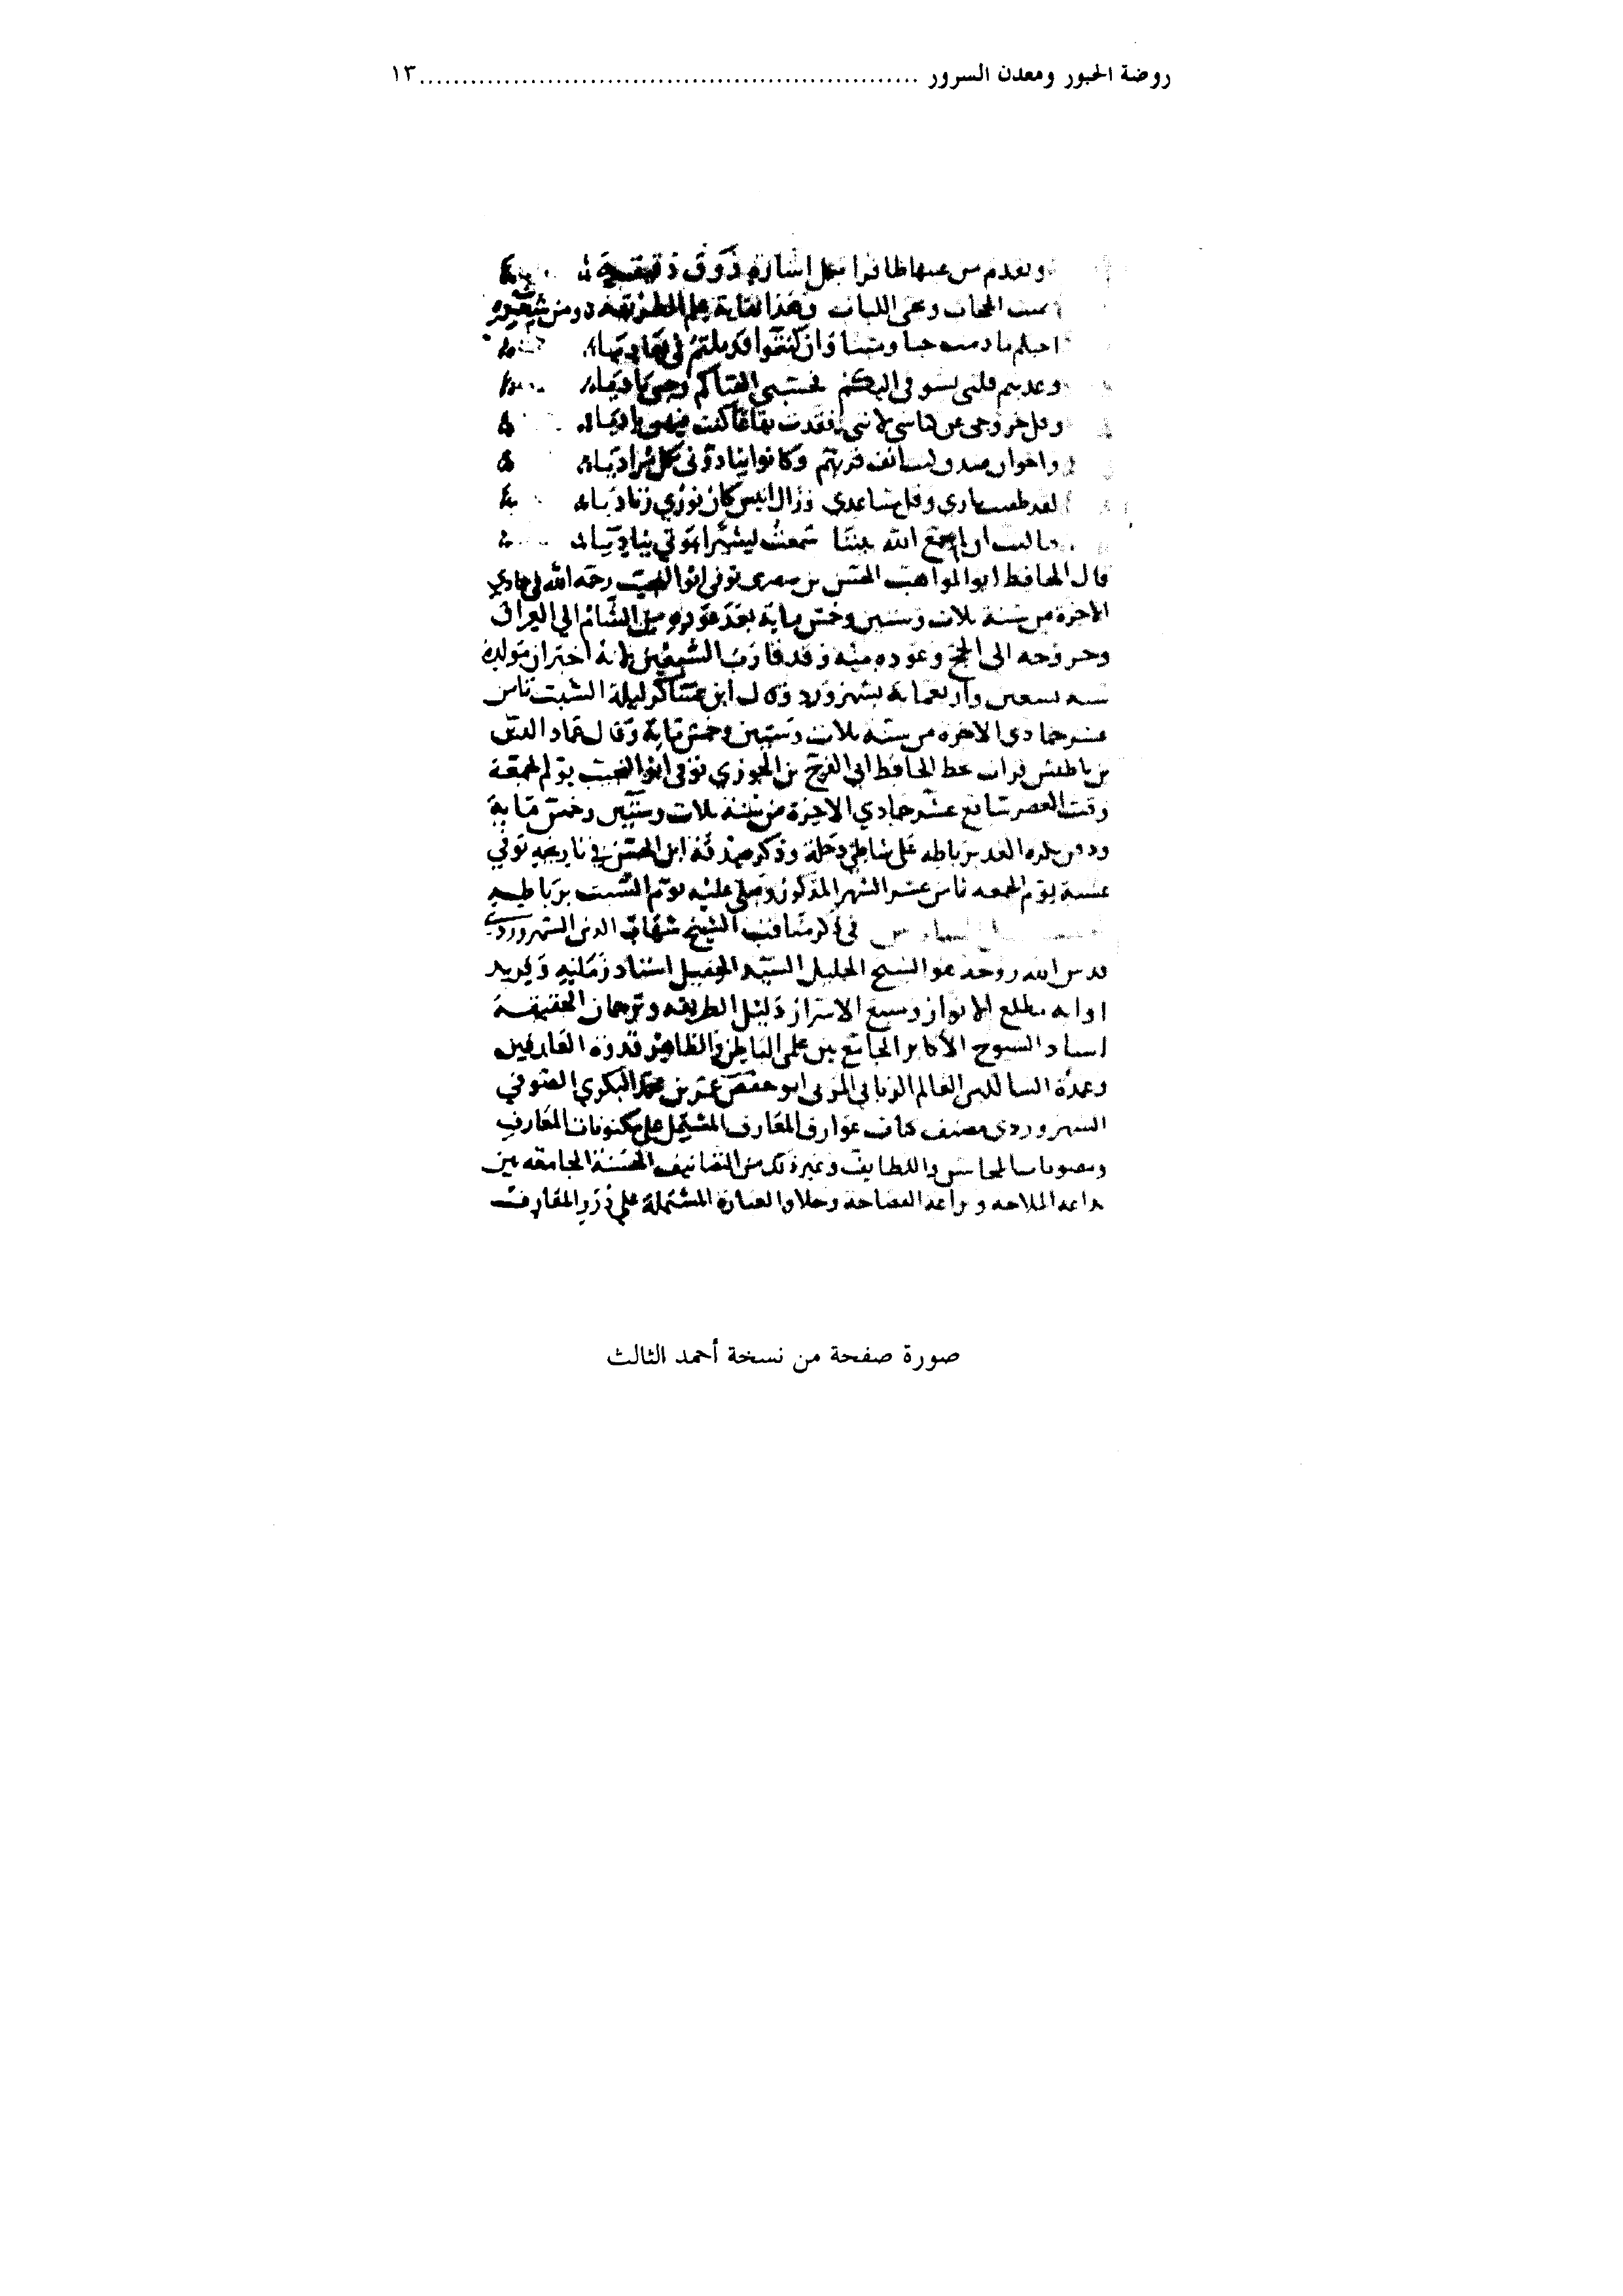 روضة الحبور ومعدن السرور ........................................................... ١٣
احبكم ما دمت حيا وميتا وان كنتم قد ملتم في بعاديا
وعذبتم قلبي بشوقي اليكم فحسبي لقاكم وحبي ناديا
وقل خروجي من كناسي لانني فقدت بقاعا كنت فيهن باديا
واخوان صدق لست انف قربهم وكانوا ينادوني بكل مراديا
لقد طفيت ناري وقل مساعدي وزال انيس كان نوري زناديا
فيا ليت ان لم يجمع الله بيننا سمعت بشيرا بموتي مناديا
قال الحافظ ابو المواهب الحسن بن صصرى توفي ابو النجيب رحمه الله في جمادي
الاخرة من سنة ثلاث وستين وخمس ماية بعد عوده من الشام الي العراق
وخروجه الى الحج وعوده منه وقد قارب السبعين لانه اخبر ان مولده
سنه تسعين واربعماية بسهرورد وقال ابن عساكر ليلة السبت ثامن
عشر جمادي الاخره من سنه ثلاث وستين وخمس ماية وقال عماد الدين
بن باطيش قرات بخط الحافظ ابي الفرج بن الجوزي توفي ابو النجيب يوم الجمعة
وقت العصر سابع عشر جمادي الاخرة من سنة ثلاث وستين وخمس ماية
ودفن بكره الغد برباطه على شاطئ دجلة وذكر صدقة ابن الحسن في تاريخه توفي
عشية يوم الجمعه ثامن عشر الشهر المذكور وصلي عليه يوم السبت برباطه
في ذكر مناقب الشيخ شهاب الدين السهروردي
قدس الله روحه هو الشيخ الجليل السيد الحفيل استاد زمانه وفريد
اوانه مطلع الانوار ومنبع الاسرار دليل الطريقه وترجمان الحقيقة
استاد الشيوخ الأكابر الجامع بين علمي الباطن والظاهر قدوة العارفين
وعمدة السالكين العالم الرباني المربي ابو حفص عمر بن محمد البكري الصوفي
السهروردي مصنف كتاب عوارف المعارف المشتمل على مكنونات المعارف
ومصونات المحاسن واللطايف وغير ذلك من التصانيف الحسنة الجامعه بين
براعه الملاحه وبراعه الفصاحة وحلاوة العبارة المشتملة علي درر المعارف
صورة صفحة من نسخة أحمد الثالث